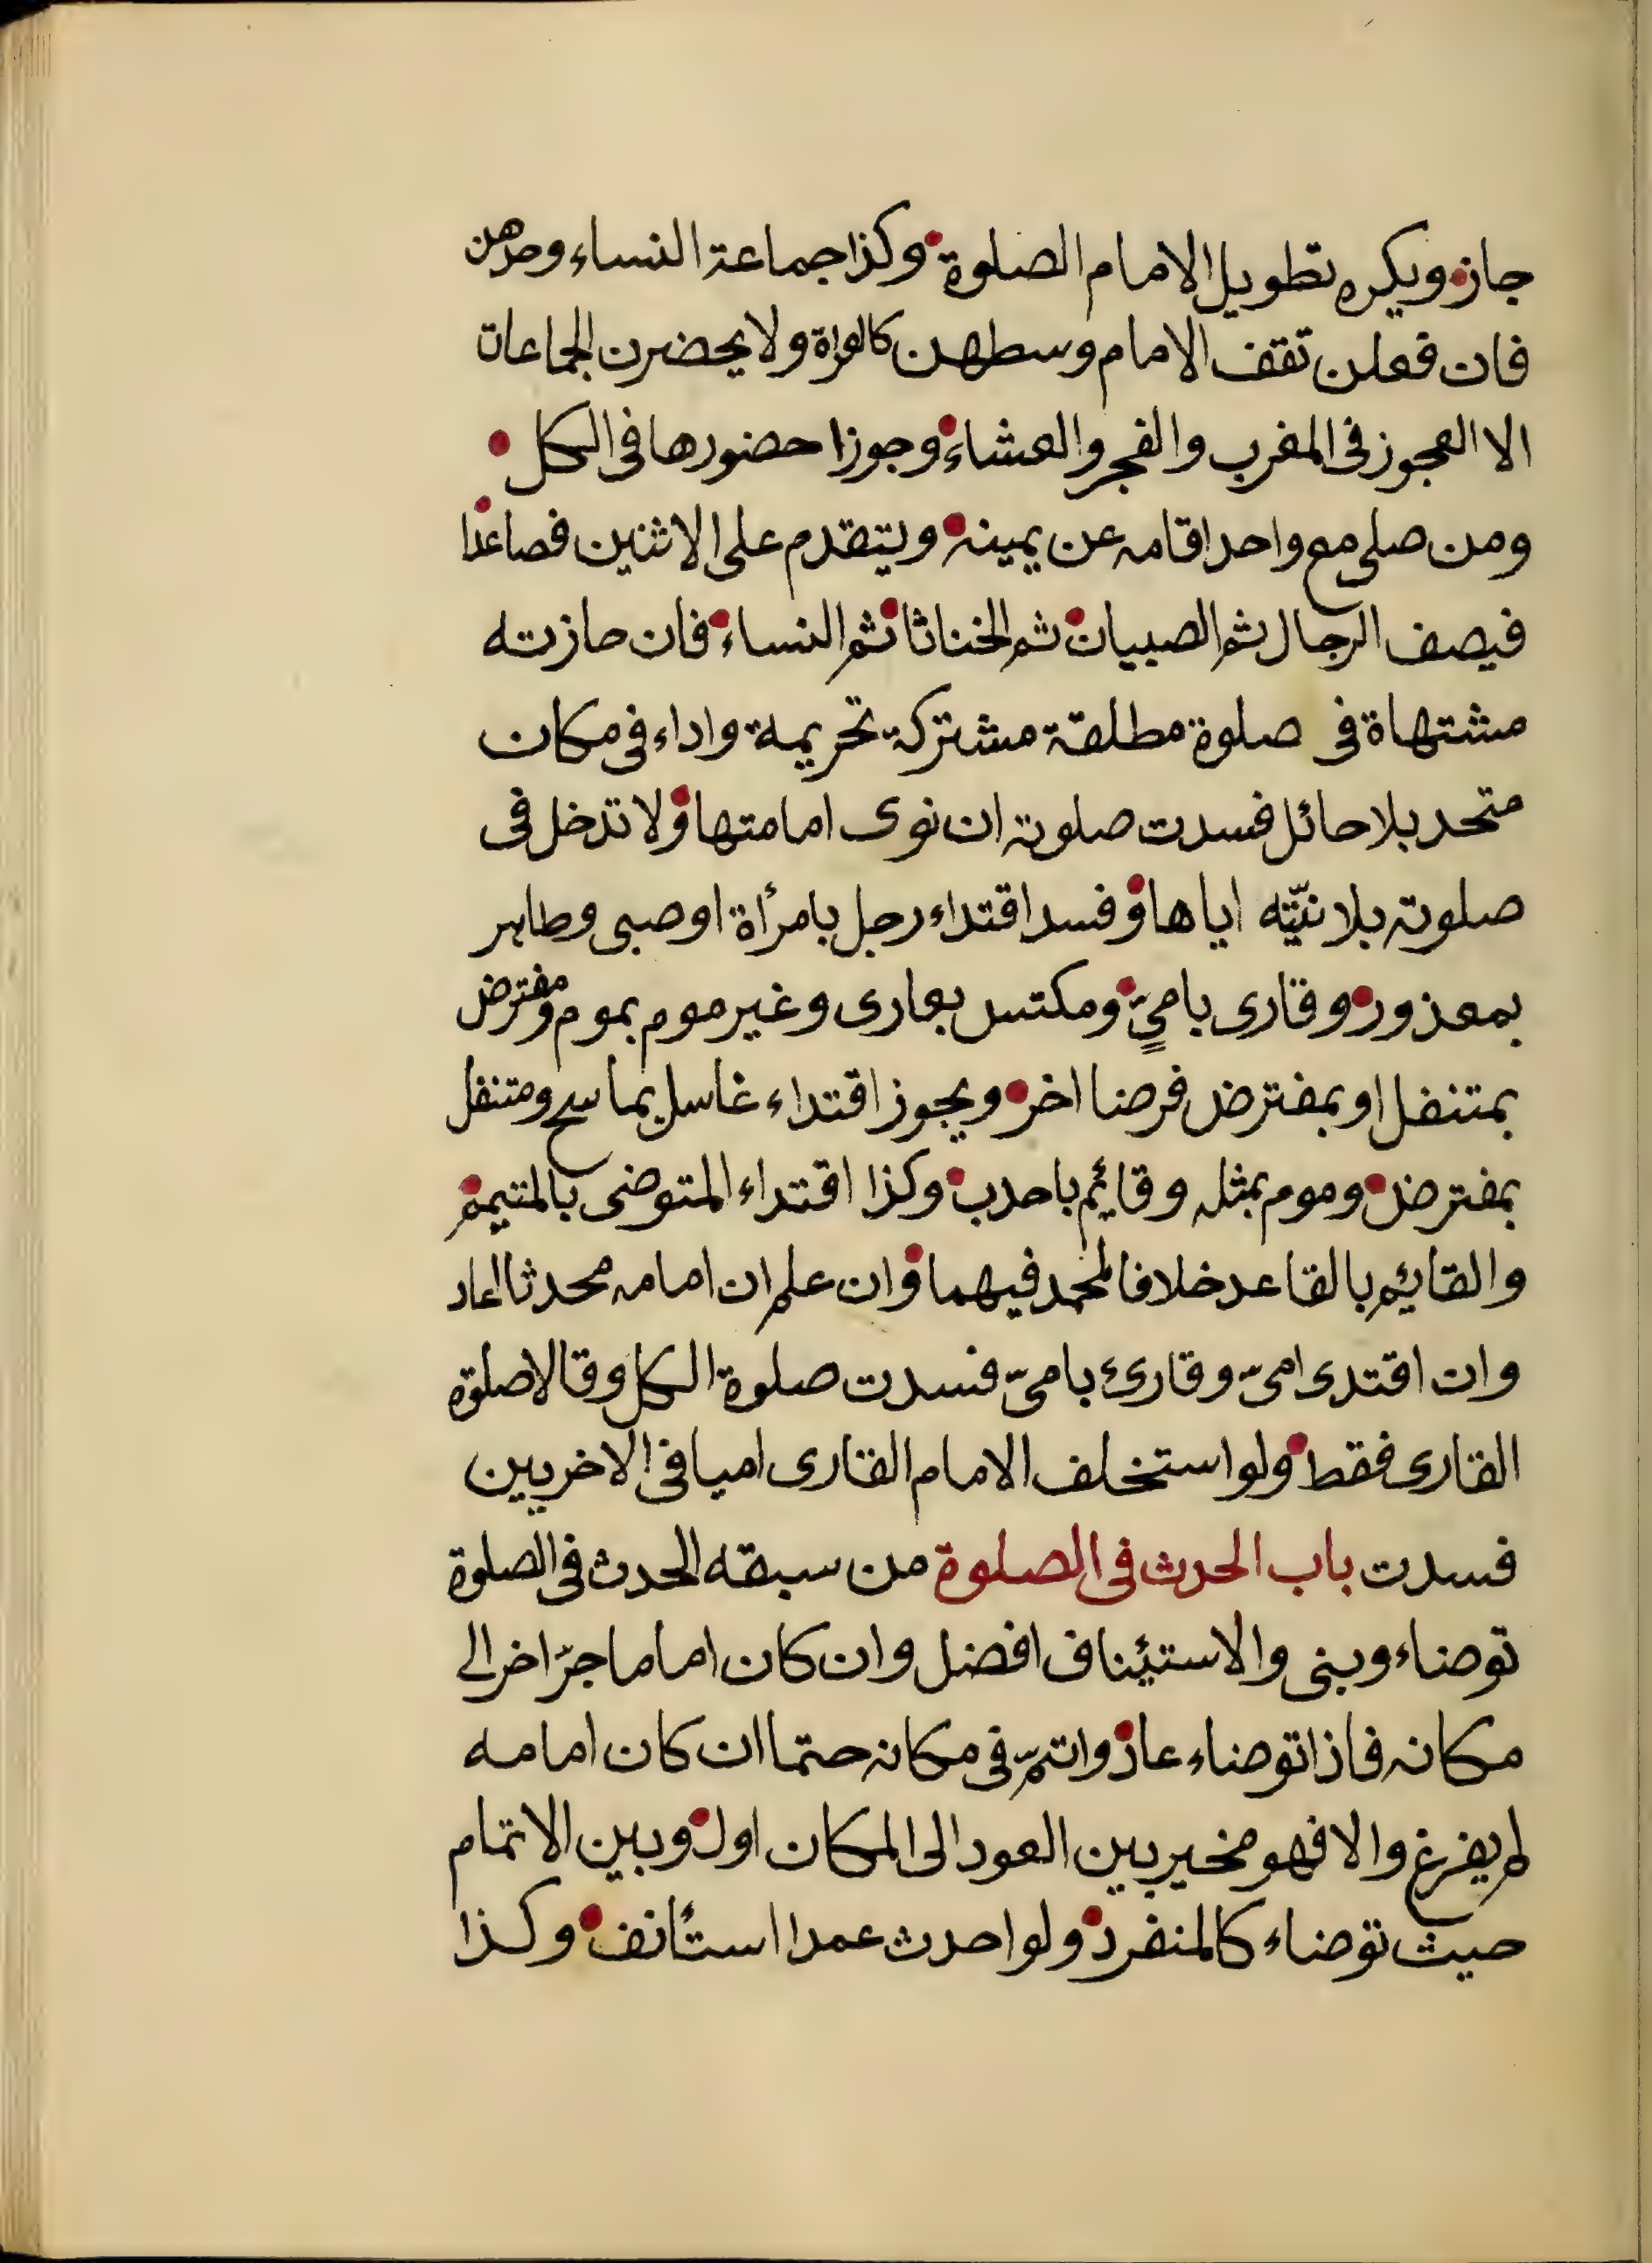 جاز ويكره تطويل الامام الصلوة وكذا جماعة النساء وحدهن
فان فعلن تقف الامام وسطهن كالعراة ولا يحضرن الجماعات
الا العجوز فى المغرب والفجر والعشاء وجوزا حضورها فى الكل
ومن صلى مع واحد اقامه عن يمينه ويتقدم على الاثنين فصاعدا
فيصف الرجال ثم الصبيان ثم الخناثا ثم النساء فان حازته
مشتهاة فى صلوة مطلقة مشتركة تحريمة واداء فى مكان
متحد بلا حائل فسدت صلوته ان نوى امامتها ولا تدخل فى
صلوته بلا نيّته اياها وفسد اقتداء رجل بامرأة او صبى وطاهر
بمعذور وقارى باميٍّ ومكتس بعارى وغير موم بموم ومفترض
بمتنفل او بمفترض فرضا اخر ويجوز اقتداء غاسل بماسح ومتنفل
بمفترض وموم بمثله وقائم باحدب وكذا اقتداء المتوضى بالمتيمم
والقايم بالقاعد خلافا لمحمد فيهما وان علم ان امامه محدثا اعاد
وان اقتدى امىّ وقارئ بامىّ فسدت صلوة الكل وقالا صلوة
القارى فقط ولو استخلف الامام القارى اميا فى الاخريين
فسدت باب الحدث فى الصلوة من سبقه الحدث فى الصلوة
توضاء وبنى والاستئناف افضل وان كان اماما جرّ اخر الى
مكانه فاذا توضاء عاد واتمّ فى مكانه حتما ان كان امامه
لم يفرغ والا فهو مخير بين العود الى المكان اول وبين الاتمام
حيث توضاء كالمنفرد ولو احدث عمدا استأنف وكذا